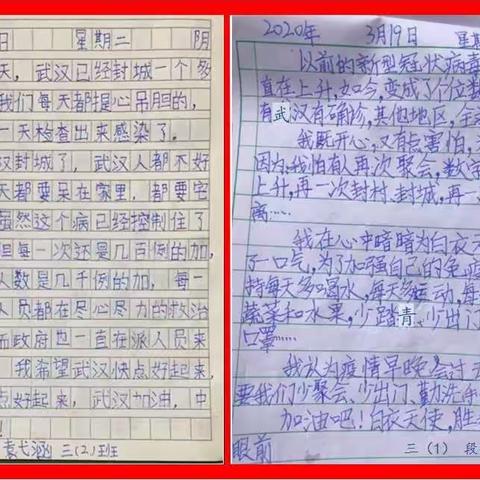 日 星期二 阴
天，武汉已经封城一个多
我们每天都提心吊胆的，
一天检查出来感染了。
汉封城了，武汉人都不好
天都要呆在家里，都要宅
虽然这个病已经控制住了
但每一次还是几百例的加，
人数是几千例的加，每一
人员都在尽心尽力的救治
而政府也一直在派人员来
我希望武汉快点好起来，
点好起来，武汉加油，中
！
袁弋涵 三(2)班
2020年 3月19日 星期
以前的新型冠状病毒
直在上升，如今，变成了个位数
有武汉有确诊，其他地区，全
我既开心，又有点害怕，
因为，我怕有人再次聚会，数字
上升，再一次封村、封城，再一
离……
我在心中暗暗为白衣天
了一口气，为了加强自己的免疫
持每天多喝水，每天多运动，每
蔬菜和水果，少踏青、少出门
口罩……
我认为疫情早晚会过去
要我们少聚会、少出门、勤洗手
加油吧！白衣天使，胜
眼前 三（1） 段